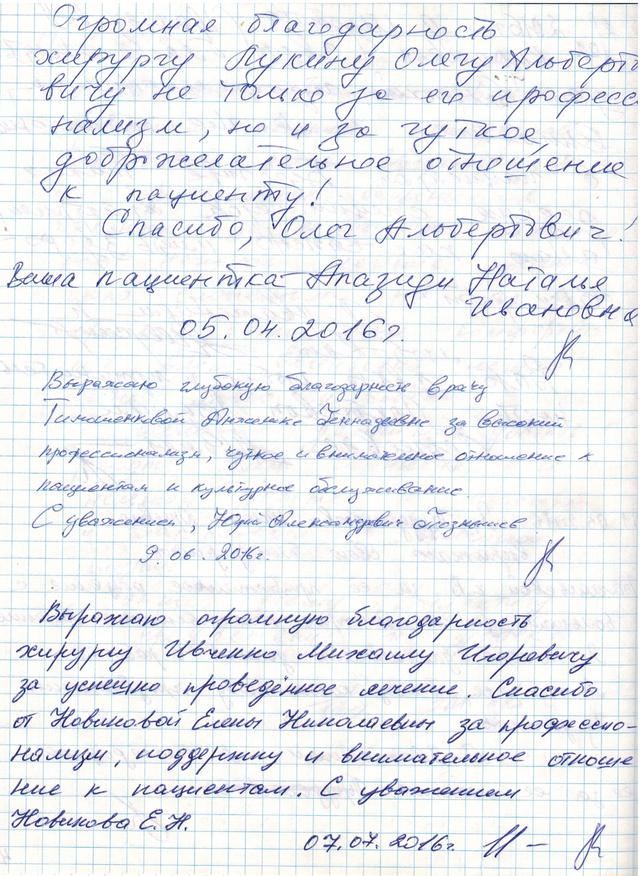 Огромная благодарность
хирургу Лукину Олегу Альберто
вичу не только за его професс
нализм, но и за чуткое,
доброжелательное отношение
к пациенту!
Спасибо, Олег Альбертович!
Ваша пациентка Апазиди Наталья
Ивановна
05.04.2016г.
Выражаю глубокую благодарность врачу
Анжелике Геннадьевне за высокий
профессионализм, чуткое и внимательное отношение к
пациентам и культурное обслуживание.
С уважением, Юрий Александрович
9.06.2016г.
Выражаю огромную благодарность
хирургу Ивченко Михаилу Игоревичу
за успешно проведённое лечение. Спасибо
от Новиковой Елены Николаевны за профессио-
нализм, поддержку и внимательное отноше
ние к пациентам. С уважением
Новикова Е.Н.
07.07.2016г.